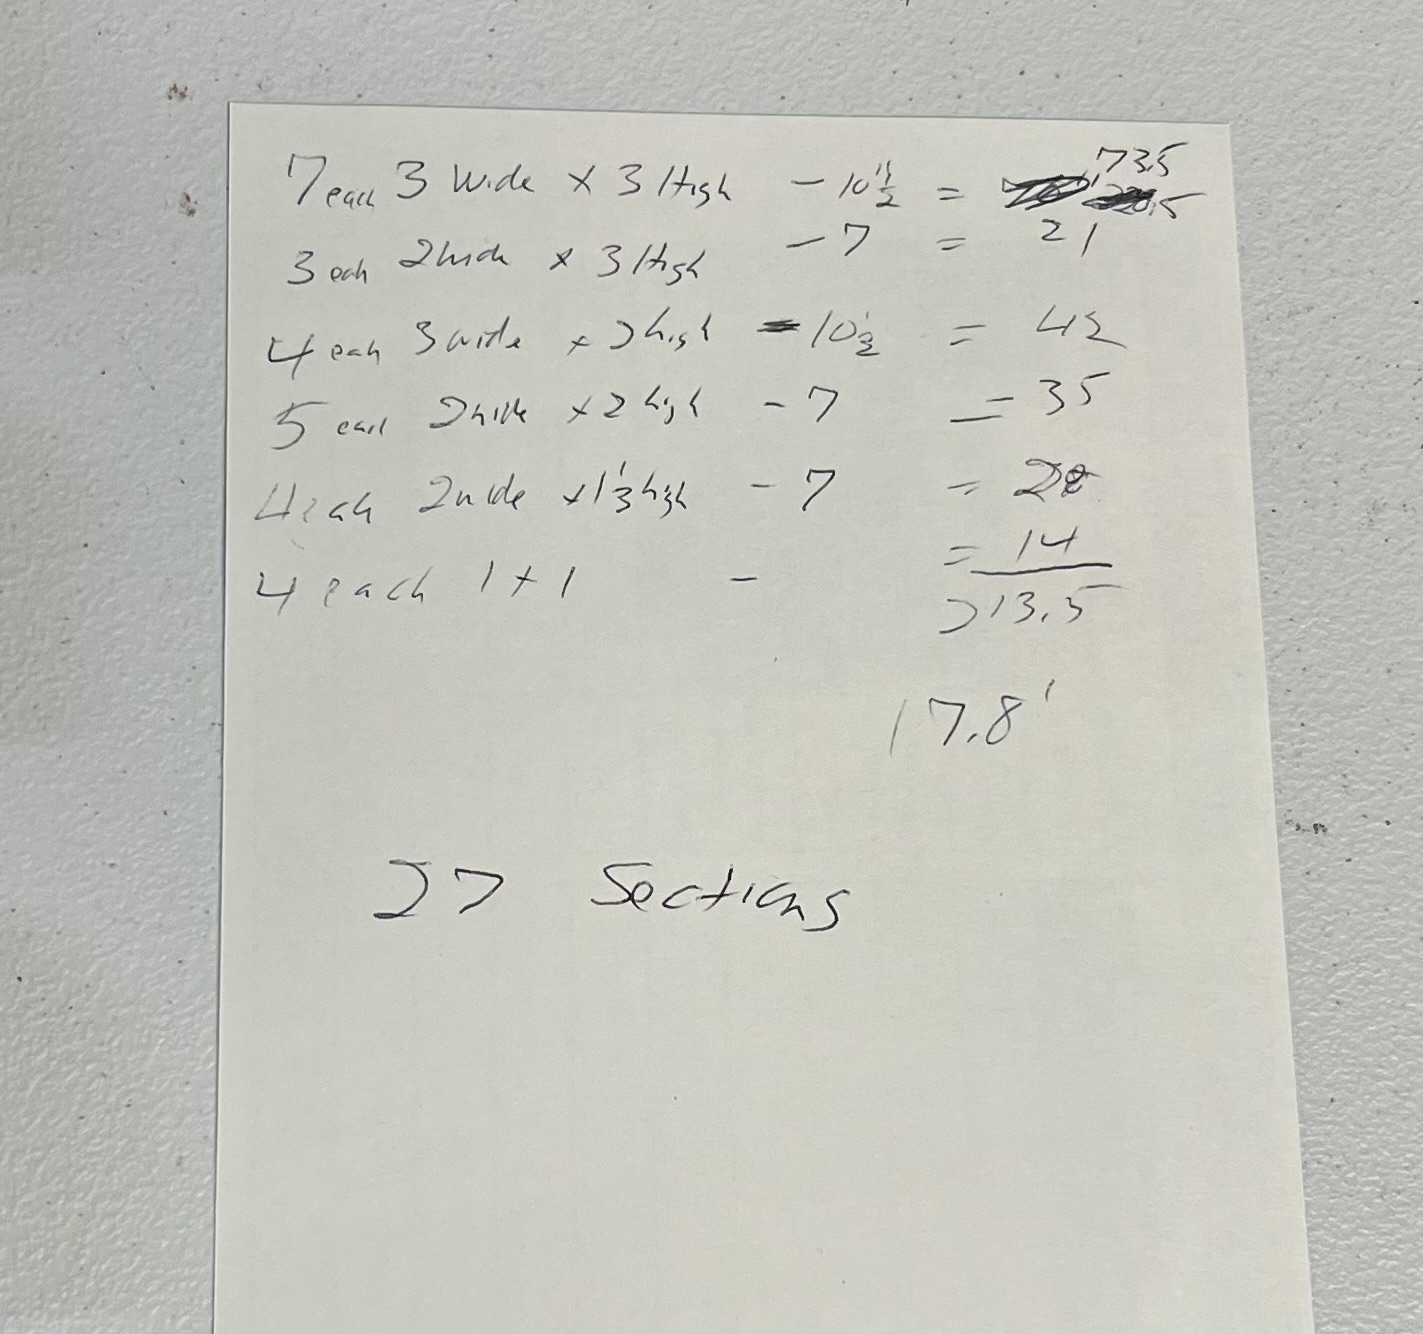 7 each 3 Wide x 3 High - 10 1/2" = 73.5
3 each 2 wide x 3 High - 7 = 21
4 each 3 wide x 2 high - 10 1/2 = 42
5 each 2 wide x 2 high - 7 = 35
4 each 2 wide x 1 1/3 high - 7 = 28
4 each 1 x 1 - = 14
213.5
17.8'
27 Sections